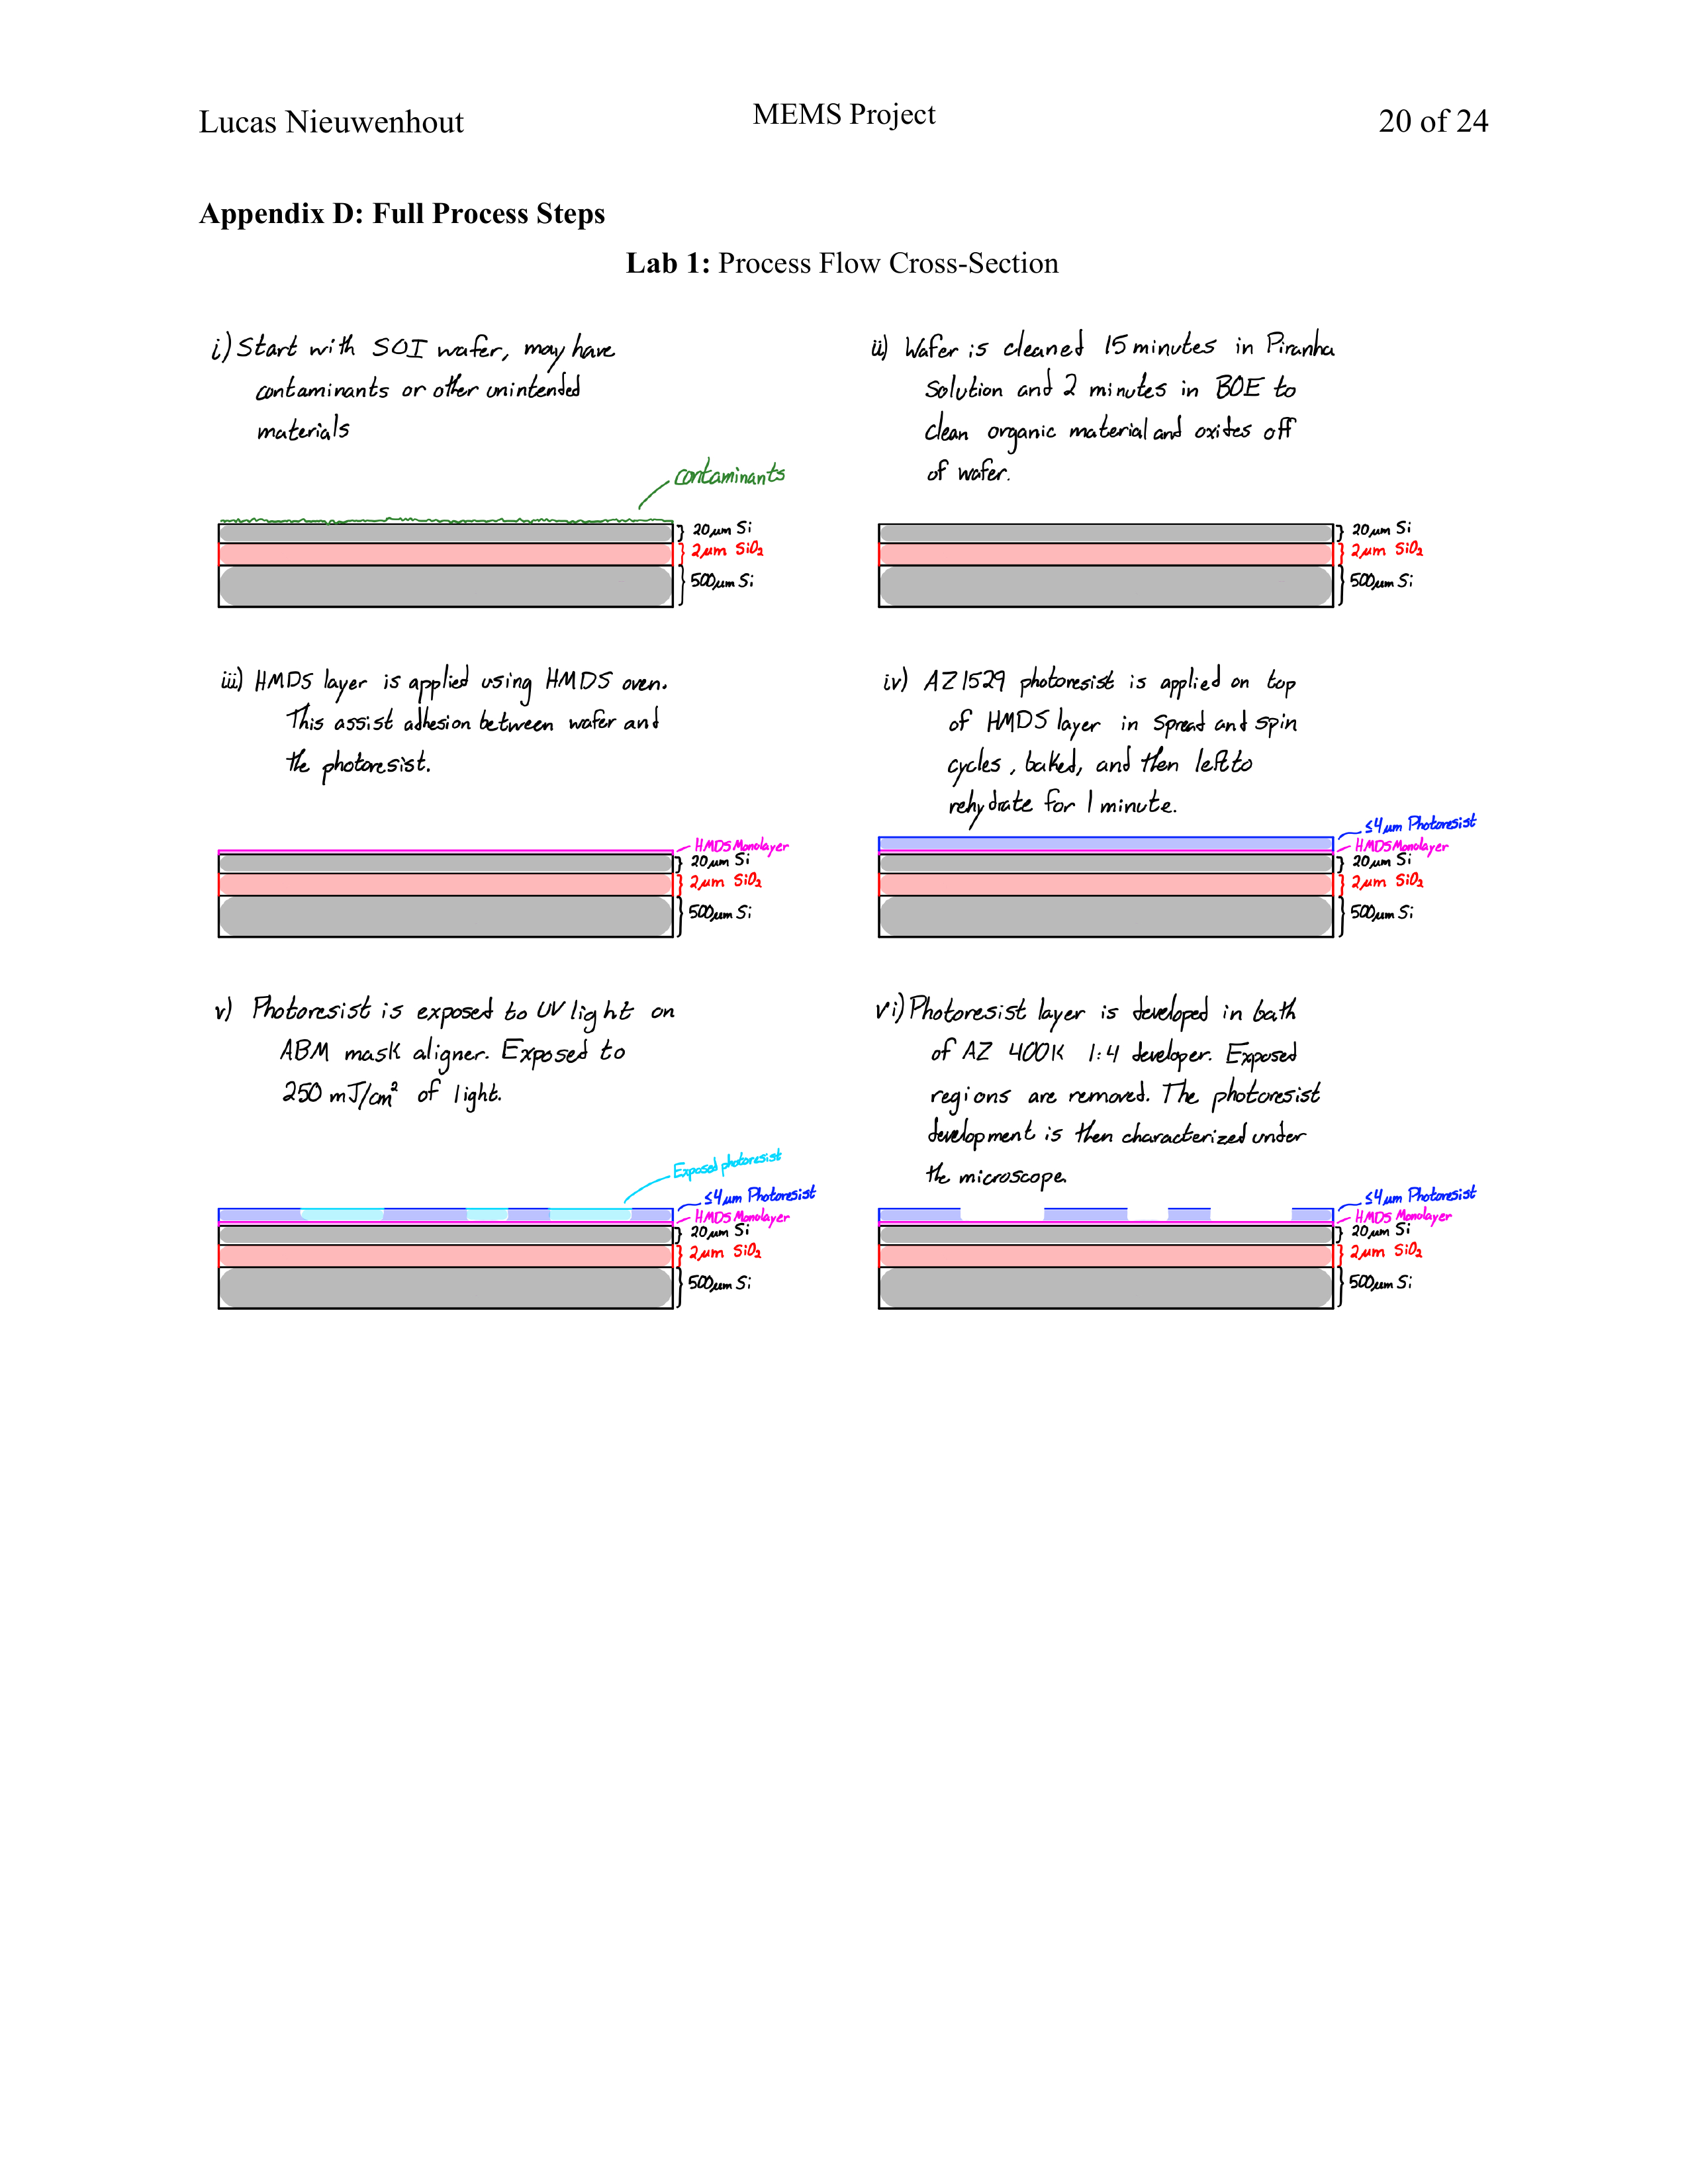 Lucas Nieuwenhout
MEMS Project
20 of 24
Appendix D: Full Process Steps
Lab 1: Process Flow Cross-Section
i) Start with SOI wafer, may have
contaminants or other unintended
materials
contaminants
20µm Si
2µm SiO₂
500µm Si
ii) Wafer is cleaned 15 minutes in Piranha
solution and 2 minutes in BOE to
clean organic material and oxides off
of wafer.
20µm Si
2µm SiO₂
500µm Si
iii) HMDS layer is applied using HMDS oven.
This assist adhesion between wafer and
the photoresist.
HMDS Monolayer
20µm Si
2µm SiO₂
500µm Si
iv) AZ1529 photoresist is applied on top
of HMDS layer in spread and spin
cycles, baked, and then left to
rehydrate for 1 minute.
≤4µm Photoresist
HMDS Monolayer
20µm Si
2µm SiO₂
500µm Si
v) Photoresist is exposed to UV light on
ABM mask aligner. Exposed to
250 mJ/cm² of light.
Exposed photoresist
≤4µm Photoresist
HMDS Monolayer
20µm Si
2µm SiO₂
500µm Si
vi) Photoresist layer is developed in bath
of AZ 400K 1:4 developer. Exposed
regions are removed. The photoresist
development is then characterized under
the microscope.
≤4µm Photoresist
HMDS Monolayer
20µm Si
2µm SiO₂
500µm Si